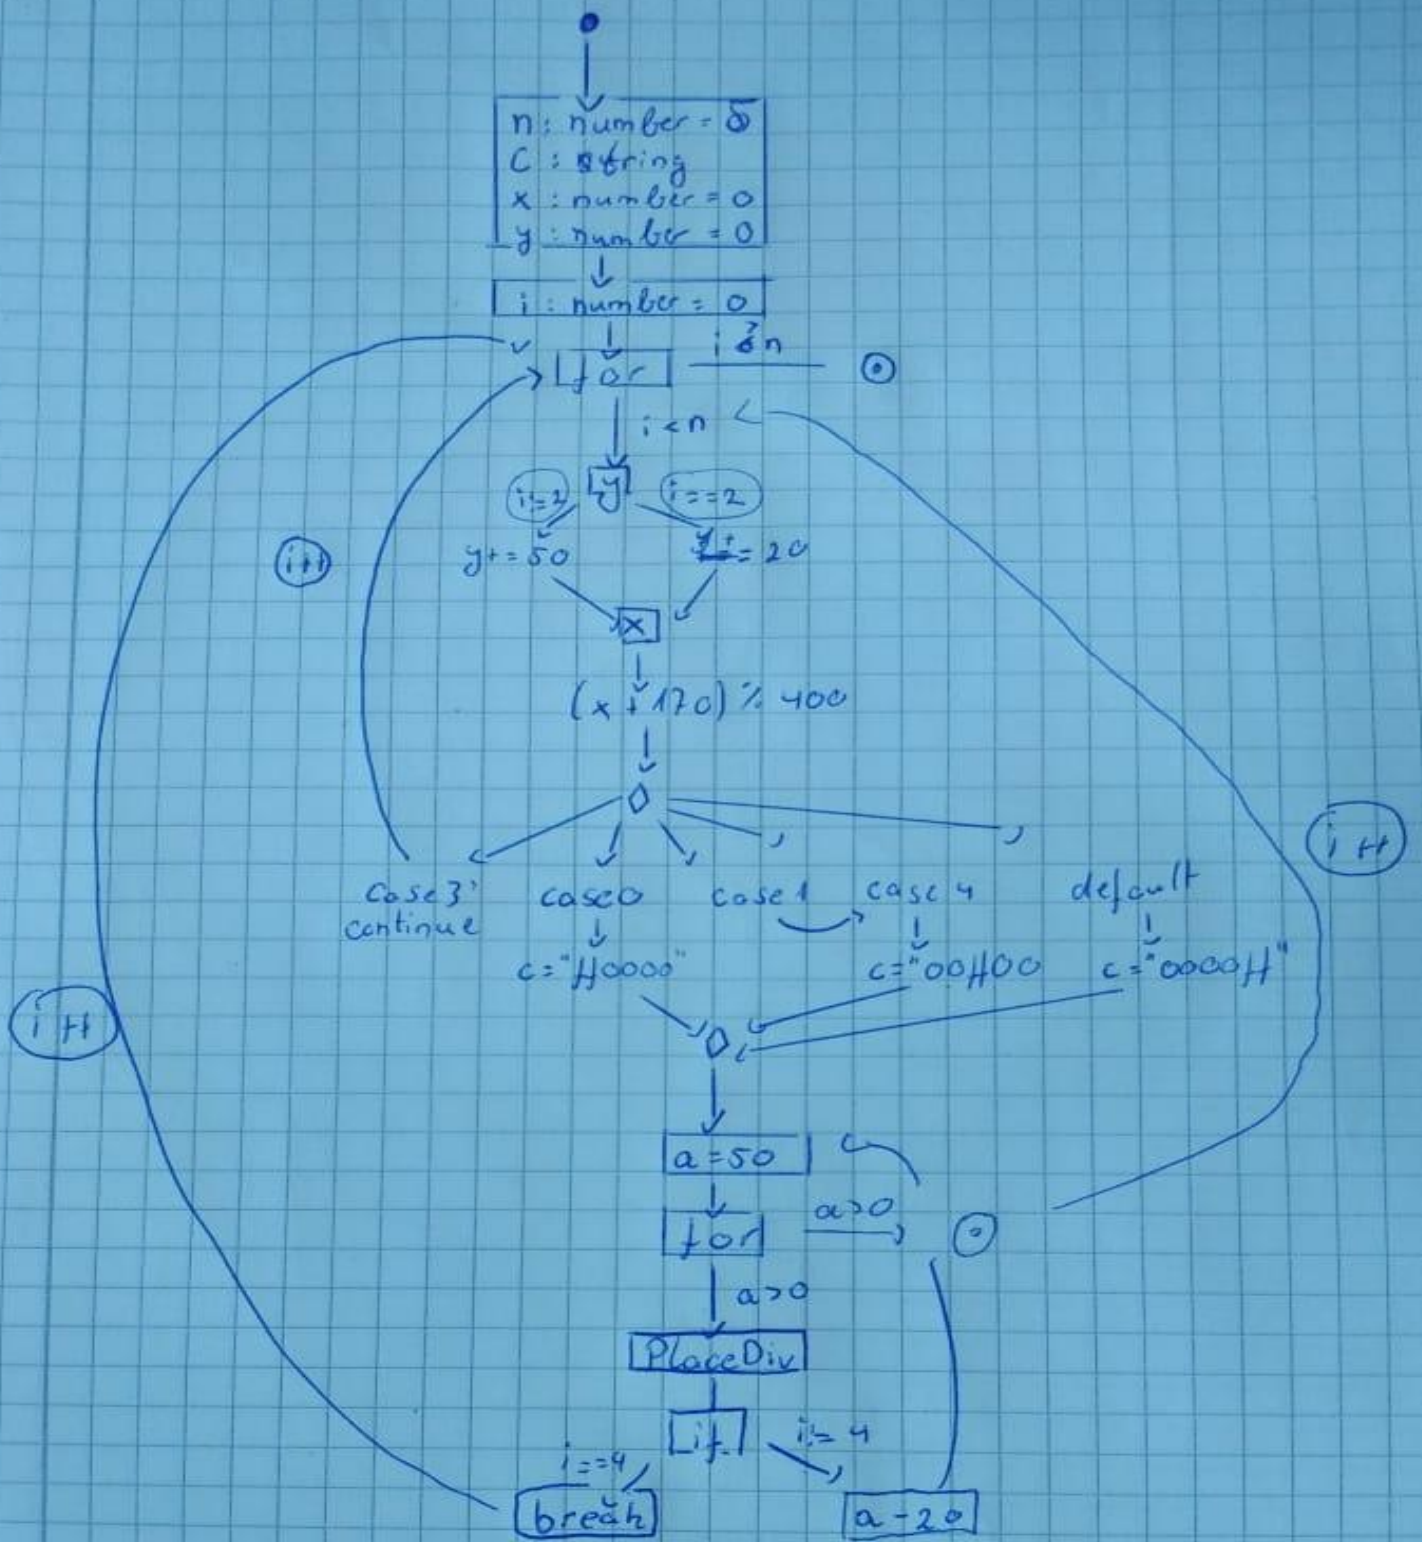 n : number = 5
C : string
x : number = 0
y : number = 0
i : number = 0
for
i < n
i!=2
y
i==2
i++
y+=50
y+=20
x
(x+170) % 400
i++
case 3
case 0
case 1
case 4
default
continue
c="#0000"
c="00#00
c="0000#"
i++
a=50
for
a>0
a>0
PlaceDiv
if
i!=4
i==4
break
a-20